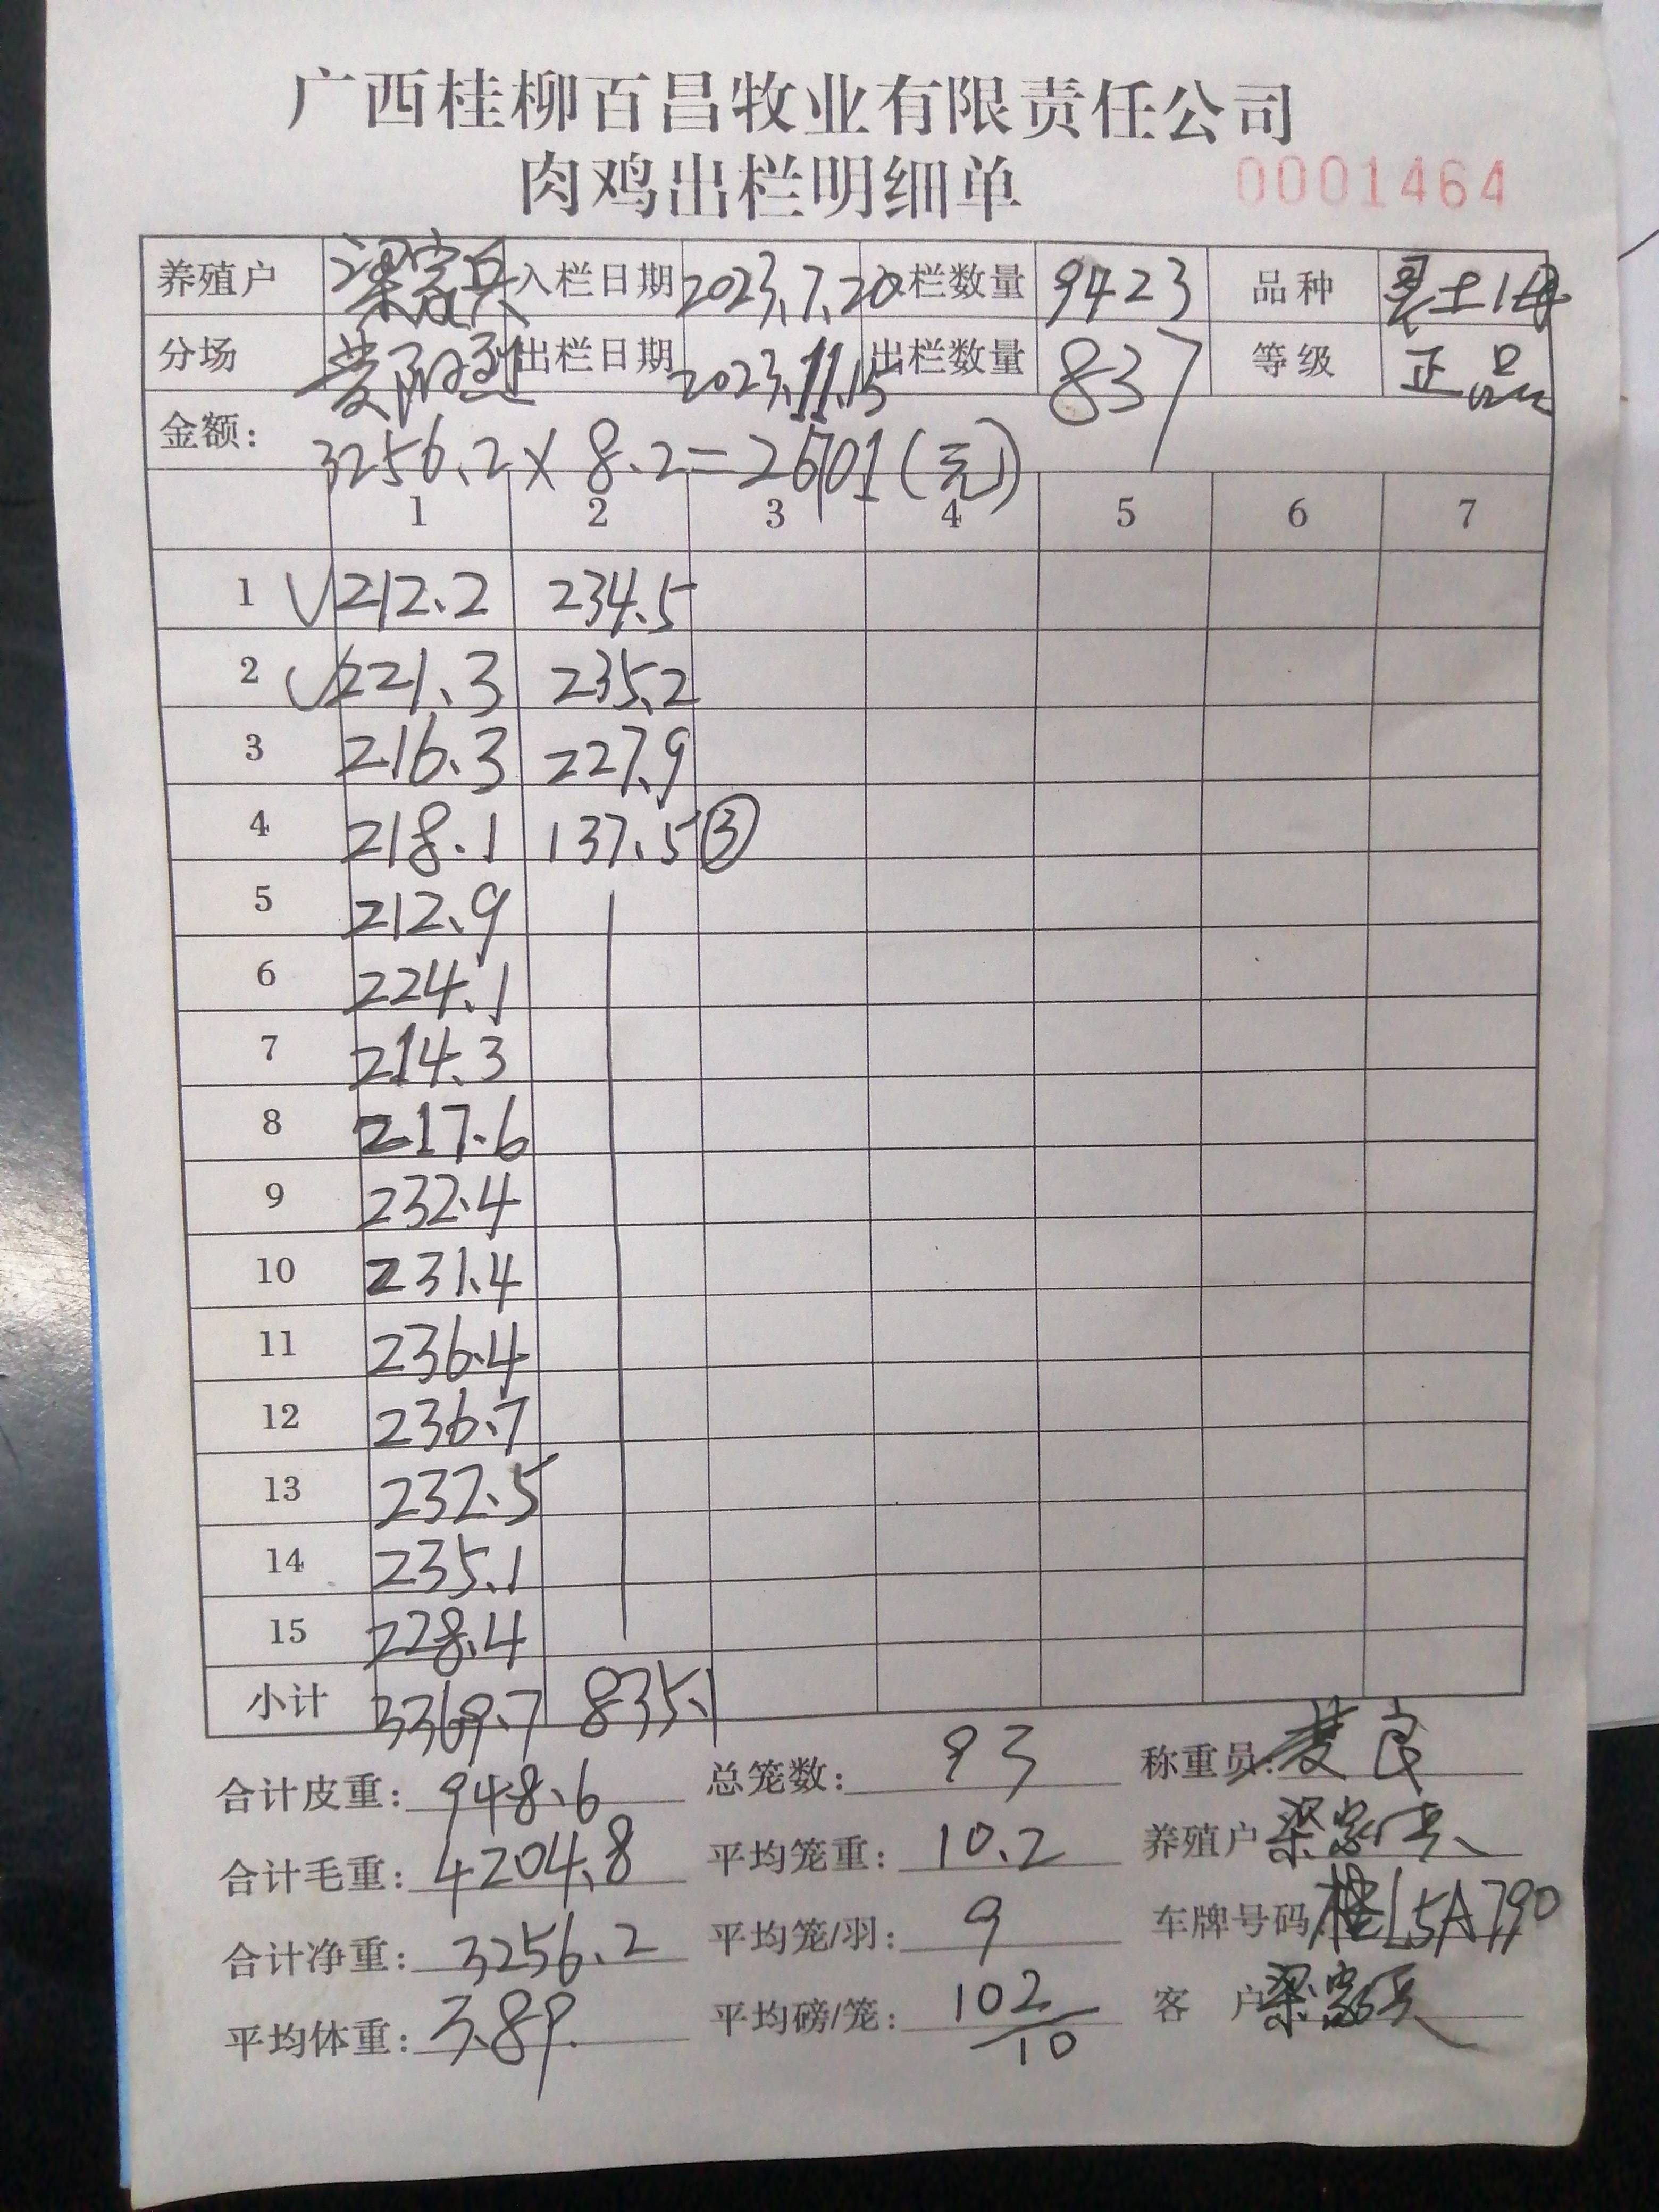 广西桂柳百昌牧业有限责任公司
肉鸡出栏明细单 0001464
养殖户 梁家兵 入栏日期 2023.7.20 栏数量 9423 品种 土1母
分场 出栏日期 2023.11.15 出栏数量 837 等级 正品
金额: 3256.2×8.2=26701(元)
1 2 3 4 5 6 7
1 √212.2 234.5
2 √221.3 235.2
3 216.3 227.9
4 218.1 137.5③
5 212.9
6 224.1
7 214.3
8 217.6
9 232.4
10 231.4
11 236.4
12 236.7
13 232.5
14 235.1
15 228.4
小计 3369.7 835.1
合计皮重: 948.6 总笼数: 93 称重员: 良
合计毛重: 4204.8 平均笼重: 10.2 养殖户 梁家兵
合计净重: 3256.2 平均笼/羽: 9 车牌号码 桂L5A790
平均体重: 3.89 平均磅/笼: 102/10 客户 梁家兵